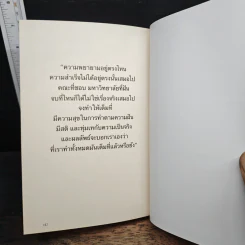 "ความพยายามอยู่ตรงไหน
ความสำเร็จไม่ได้อยู่ตรงนั้นเสมอไป
คณะที่ชอบ มหาวิทยาลัยที่ฝัน
จบที่ไหนก็ได้ไม่ใช่เรื่องจริงเสมอไป
จงทำให้เต็มที่
มีความสุขในการทำตามความฝัน
มีสติ และทุ่มเทกับความเป็นจริง
และผลลัพธ์จะบอกเราเองว่า
ที่เราทำทั้งหมดมันเต็มที่แล้วหรือยัง"